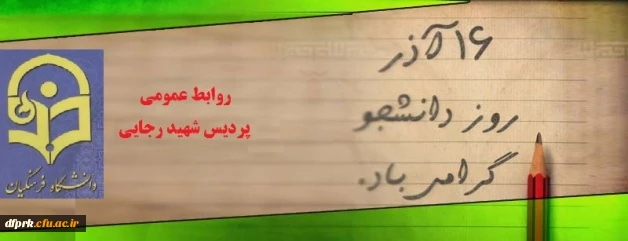 ۱۶ آذر
روز دانشجو
گرامی باد.
روابط عمومی
پردیس شهید رجایی
دانشگاه فرهنگیان
dfprk.cfu.ac.ir